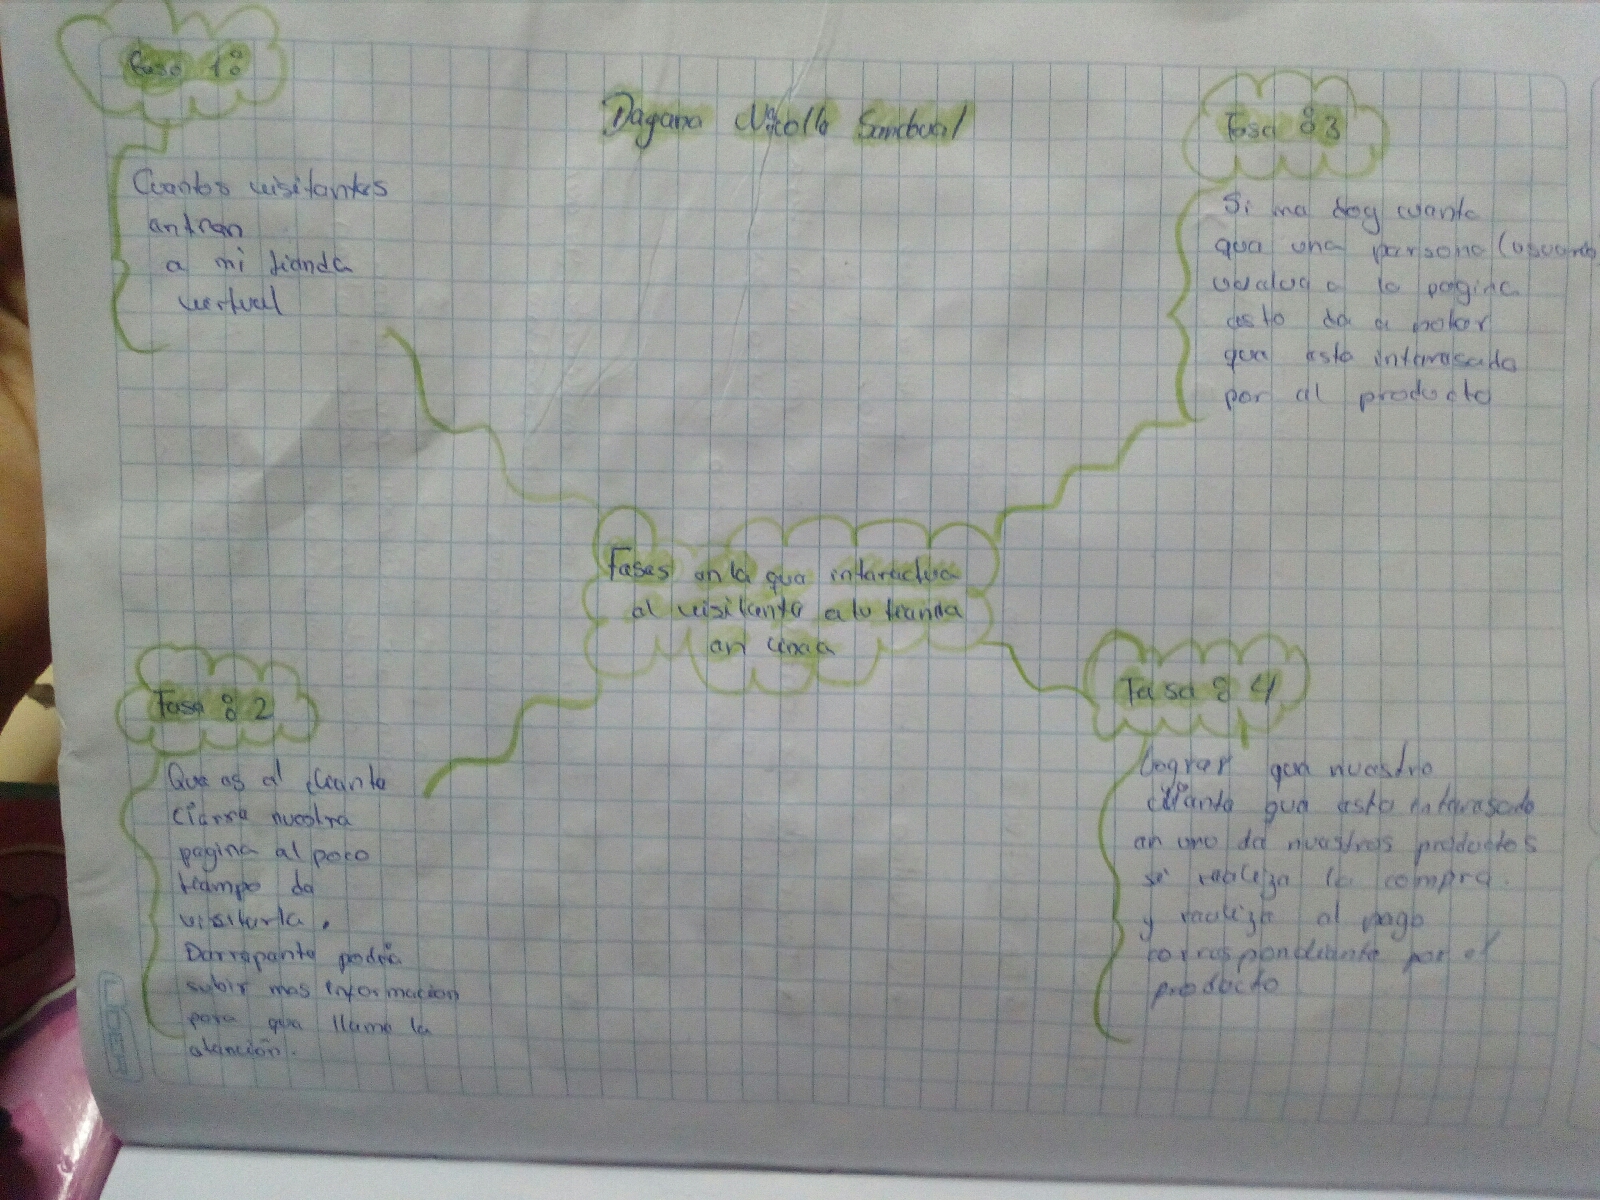 Fase 1:
Cuantos visitantes
entran
a mi tienda
vertual
Dayana Nicolle Sandoval
Fase : 3
Si me doy cuenta
que una persona (usuario)
vuelve a la pagina
esto da a notar
que esta interesado
por el producto
Fases en la que interactua
el visitante a tu tienda
en linea
Fase : 2
Que es el cliente
cierra nuestra
pagina al poco
tiempo de
visitarla.
podria
subir mas informacion
para que llame la
atención.
Fase : 4
Lograr que nuestro
cliente que esta interesado
en uno de nuestros productos
si realiza la compra.
y realiza el pago
correspondiente por el
producto